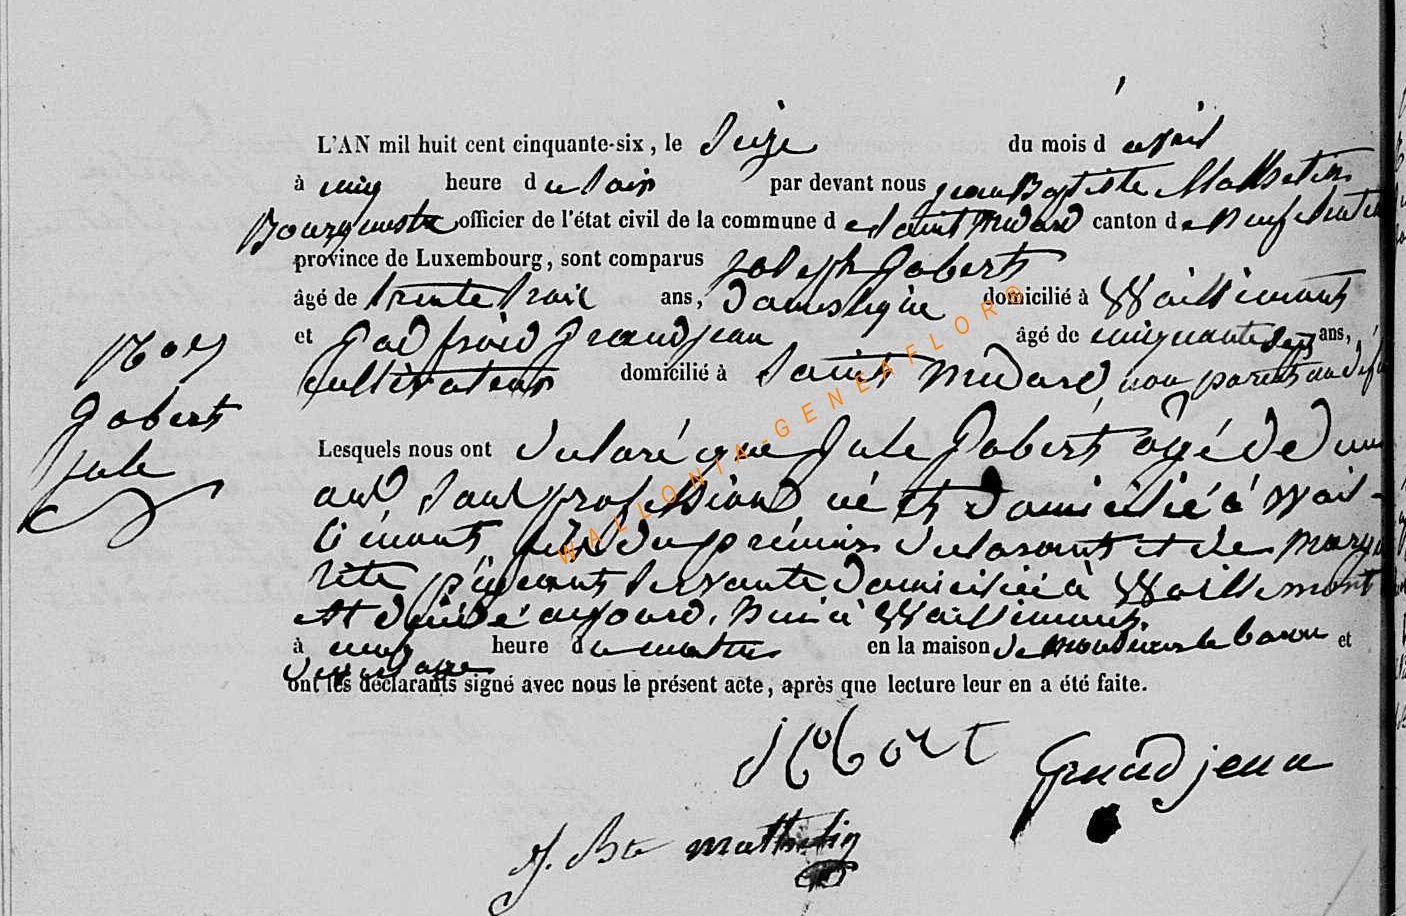 L'AN mil huit cent cinquante-six, le Seize du mois d avril
à cinq heure du Soir par devant nous jean Baptiste Mathelin
Bourgmestre officier de l'état civil de la commune de Saint Médard canton de Neufchateau
province de Luxembourg, sont comparus Joseph Gobert
âgé de trente trois ans, domestique domicilié à Waillimont
et Godfroid Grandjean âgé de cinquante ans,
cultivateur domicilié à Saint Médard, non parents du
N° 9
Gobert
Jule
Lesquels nous ont déclaré que Jule Gobert agé de d'un
an Sans profession né et domicilié à Wail-
limont, fils du prémier déclarant et de Margue
rite servante domiciliée à Waillimont
est décédé aujourd'hui à Waillimont
à cinq heure du matin en la maison de monsieur le baron et
ont les déclarants signé avec nous le présent acte, après que lecture leur en a été faite.
J Gobert Grandjean
J. Bte mathelin
WALLONIA-GENEAFLOR®